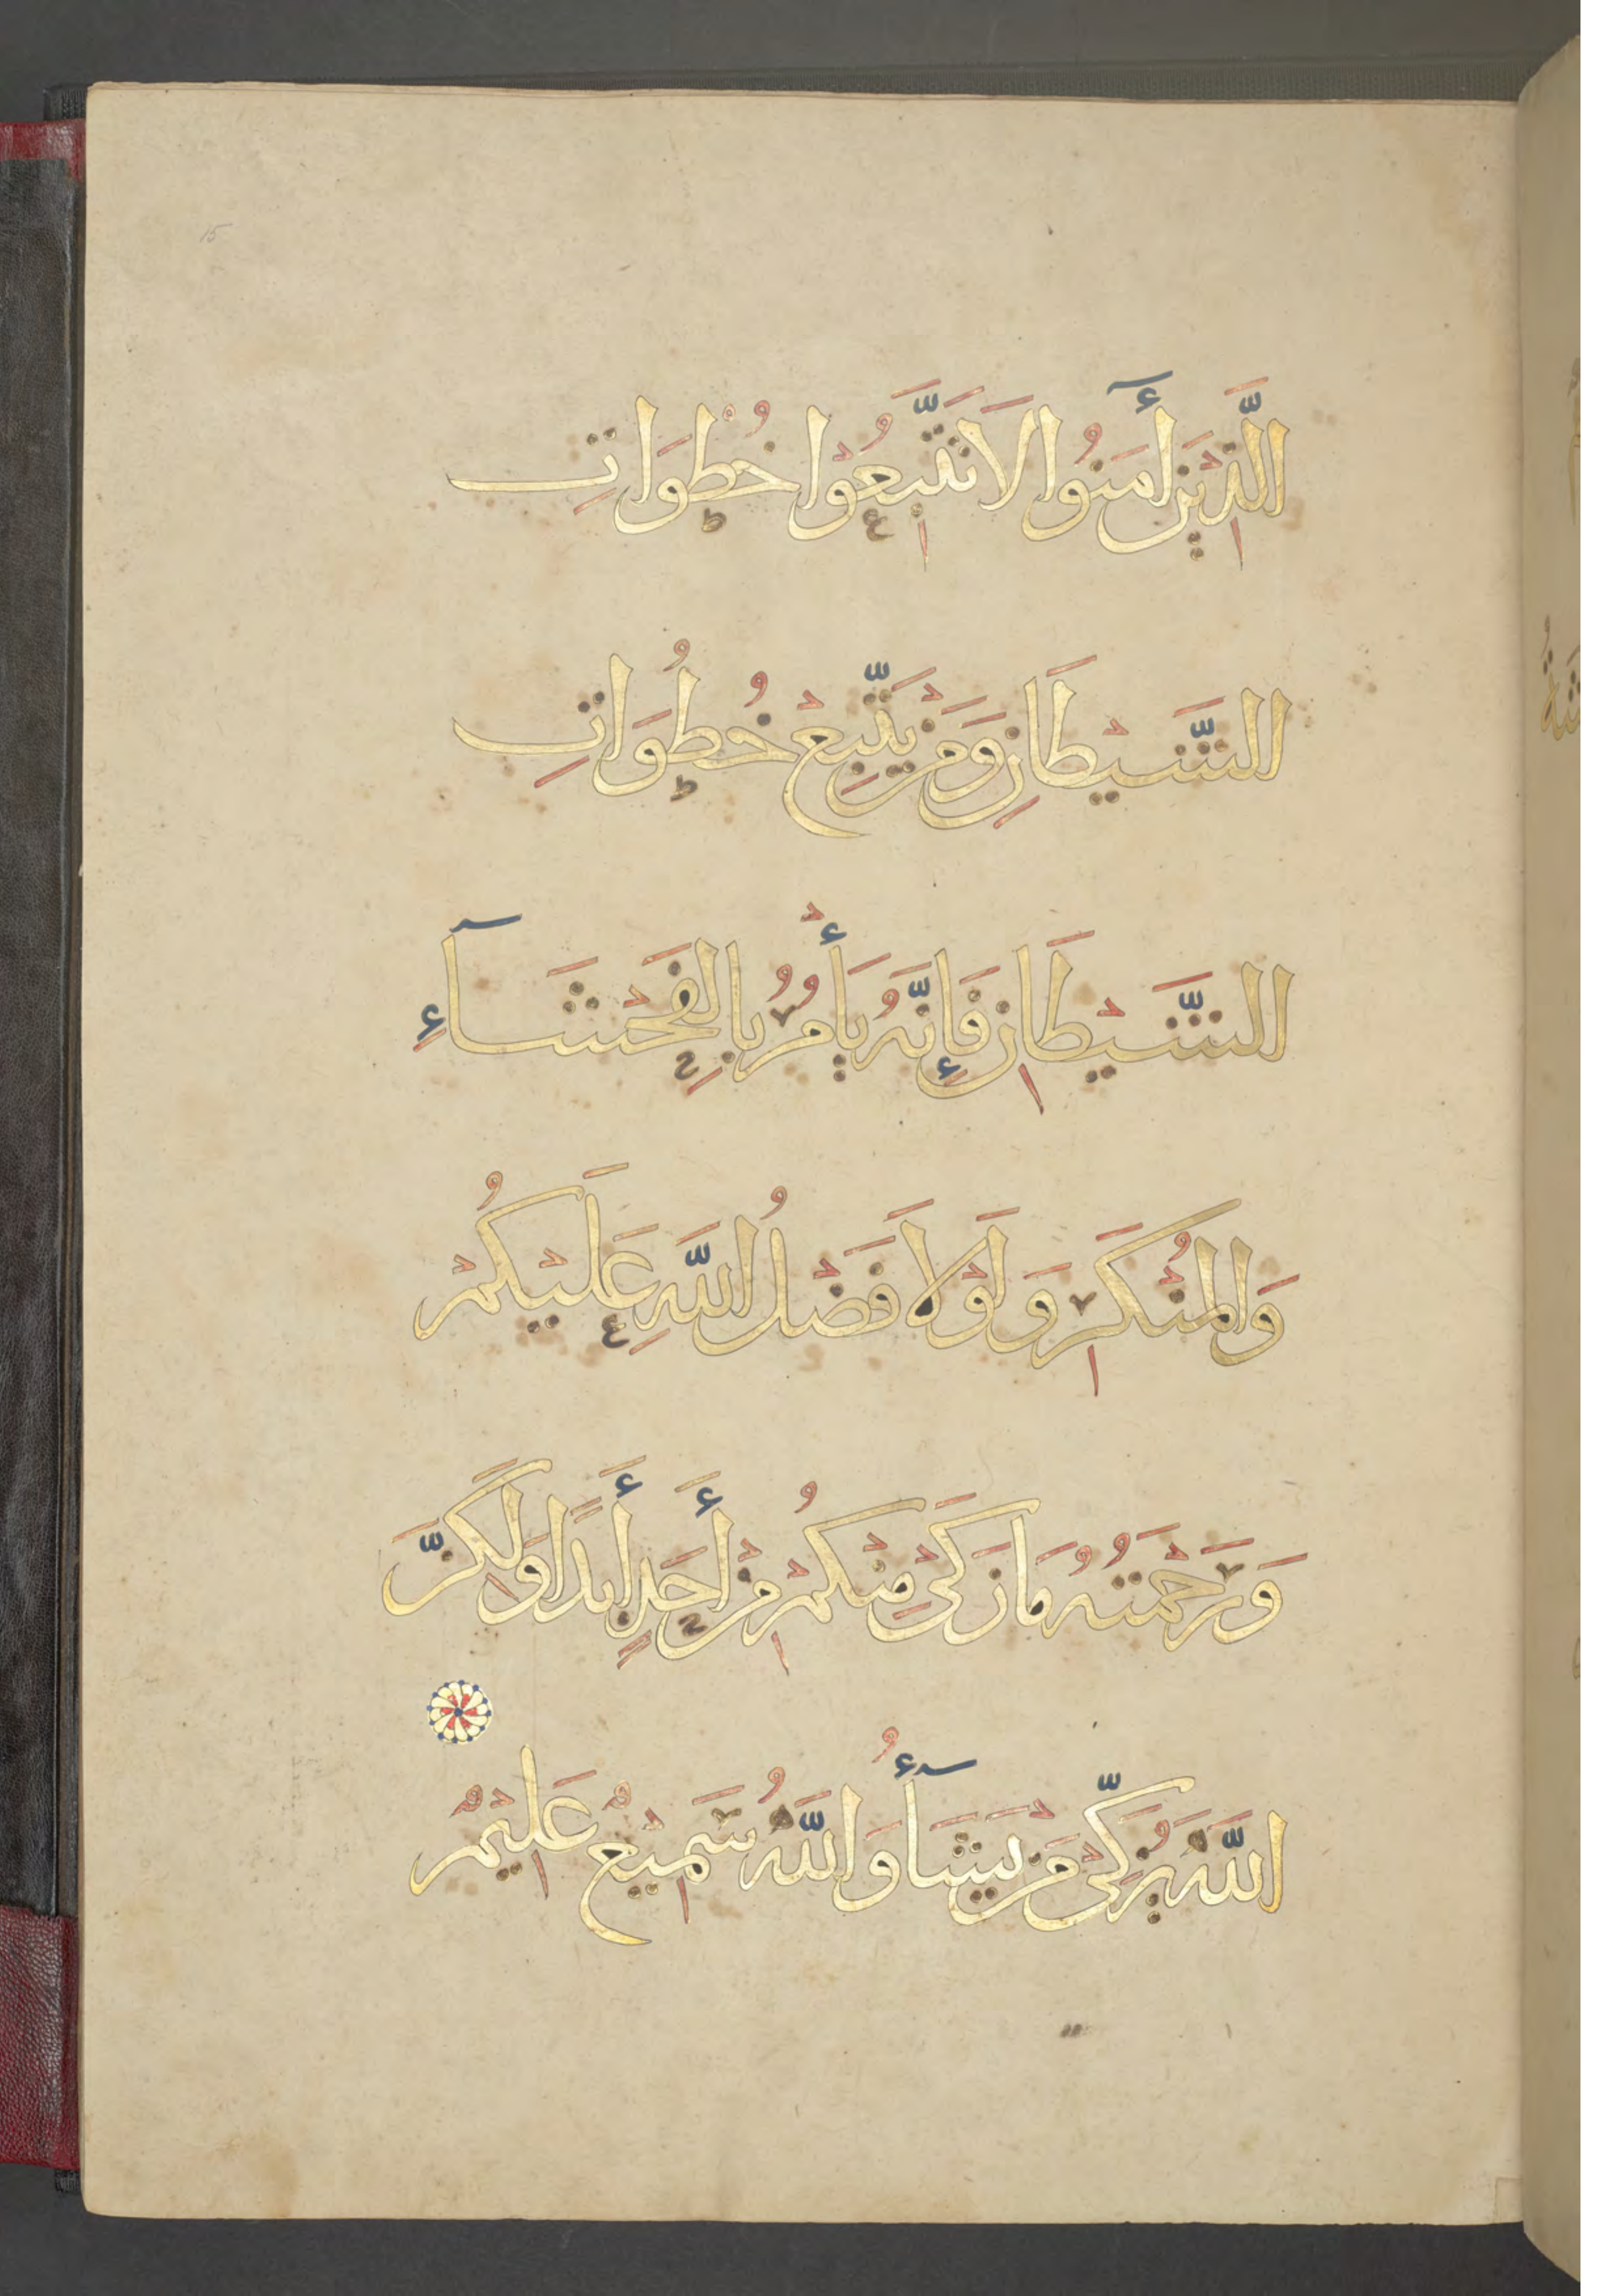 الَّذِيْنَ أٓمَنُوا لَا تَتَّبِعُوْا خُطْوَاتِ
الشَّيْطَانِ وَمَنْ يَتَّبِعْ خُطُوَاتِ
الشَّيْطَانِ فَإِنَّهُ يَأْمُرُ بِالفَحْشَآءِ
وَالمُنْكَرِ وَلَوْلَا فَضْلُ اللَّهِ عَلَيْكُمْ
وَرَحْمَتُهُ مَا زَكَىْ مِنْكُمْ مِنْ أَحَدٍ أَبَدًا وَلَكِنَّ
اللَّهَ يُزَكِّيْ مَنْ يَشَآأُ وَاللَّهُ سَمِيْعٌ عَلِيْمٌ
15